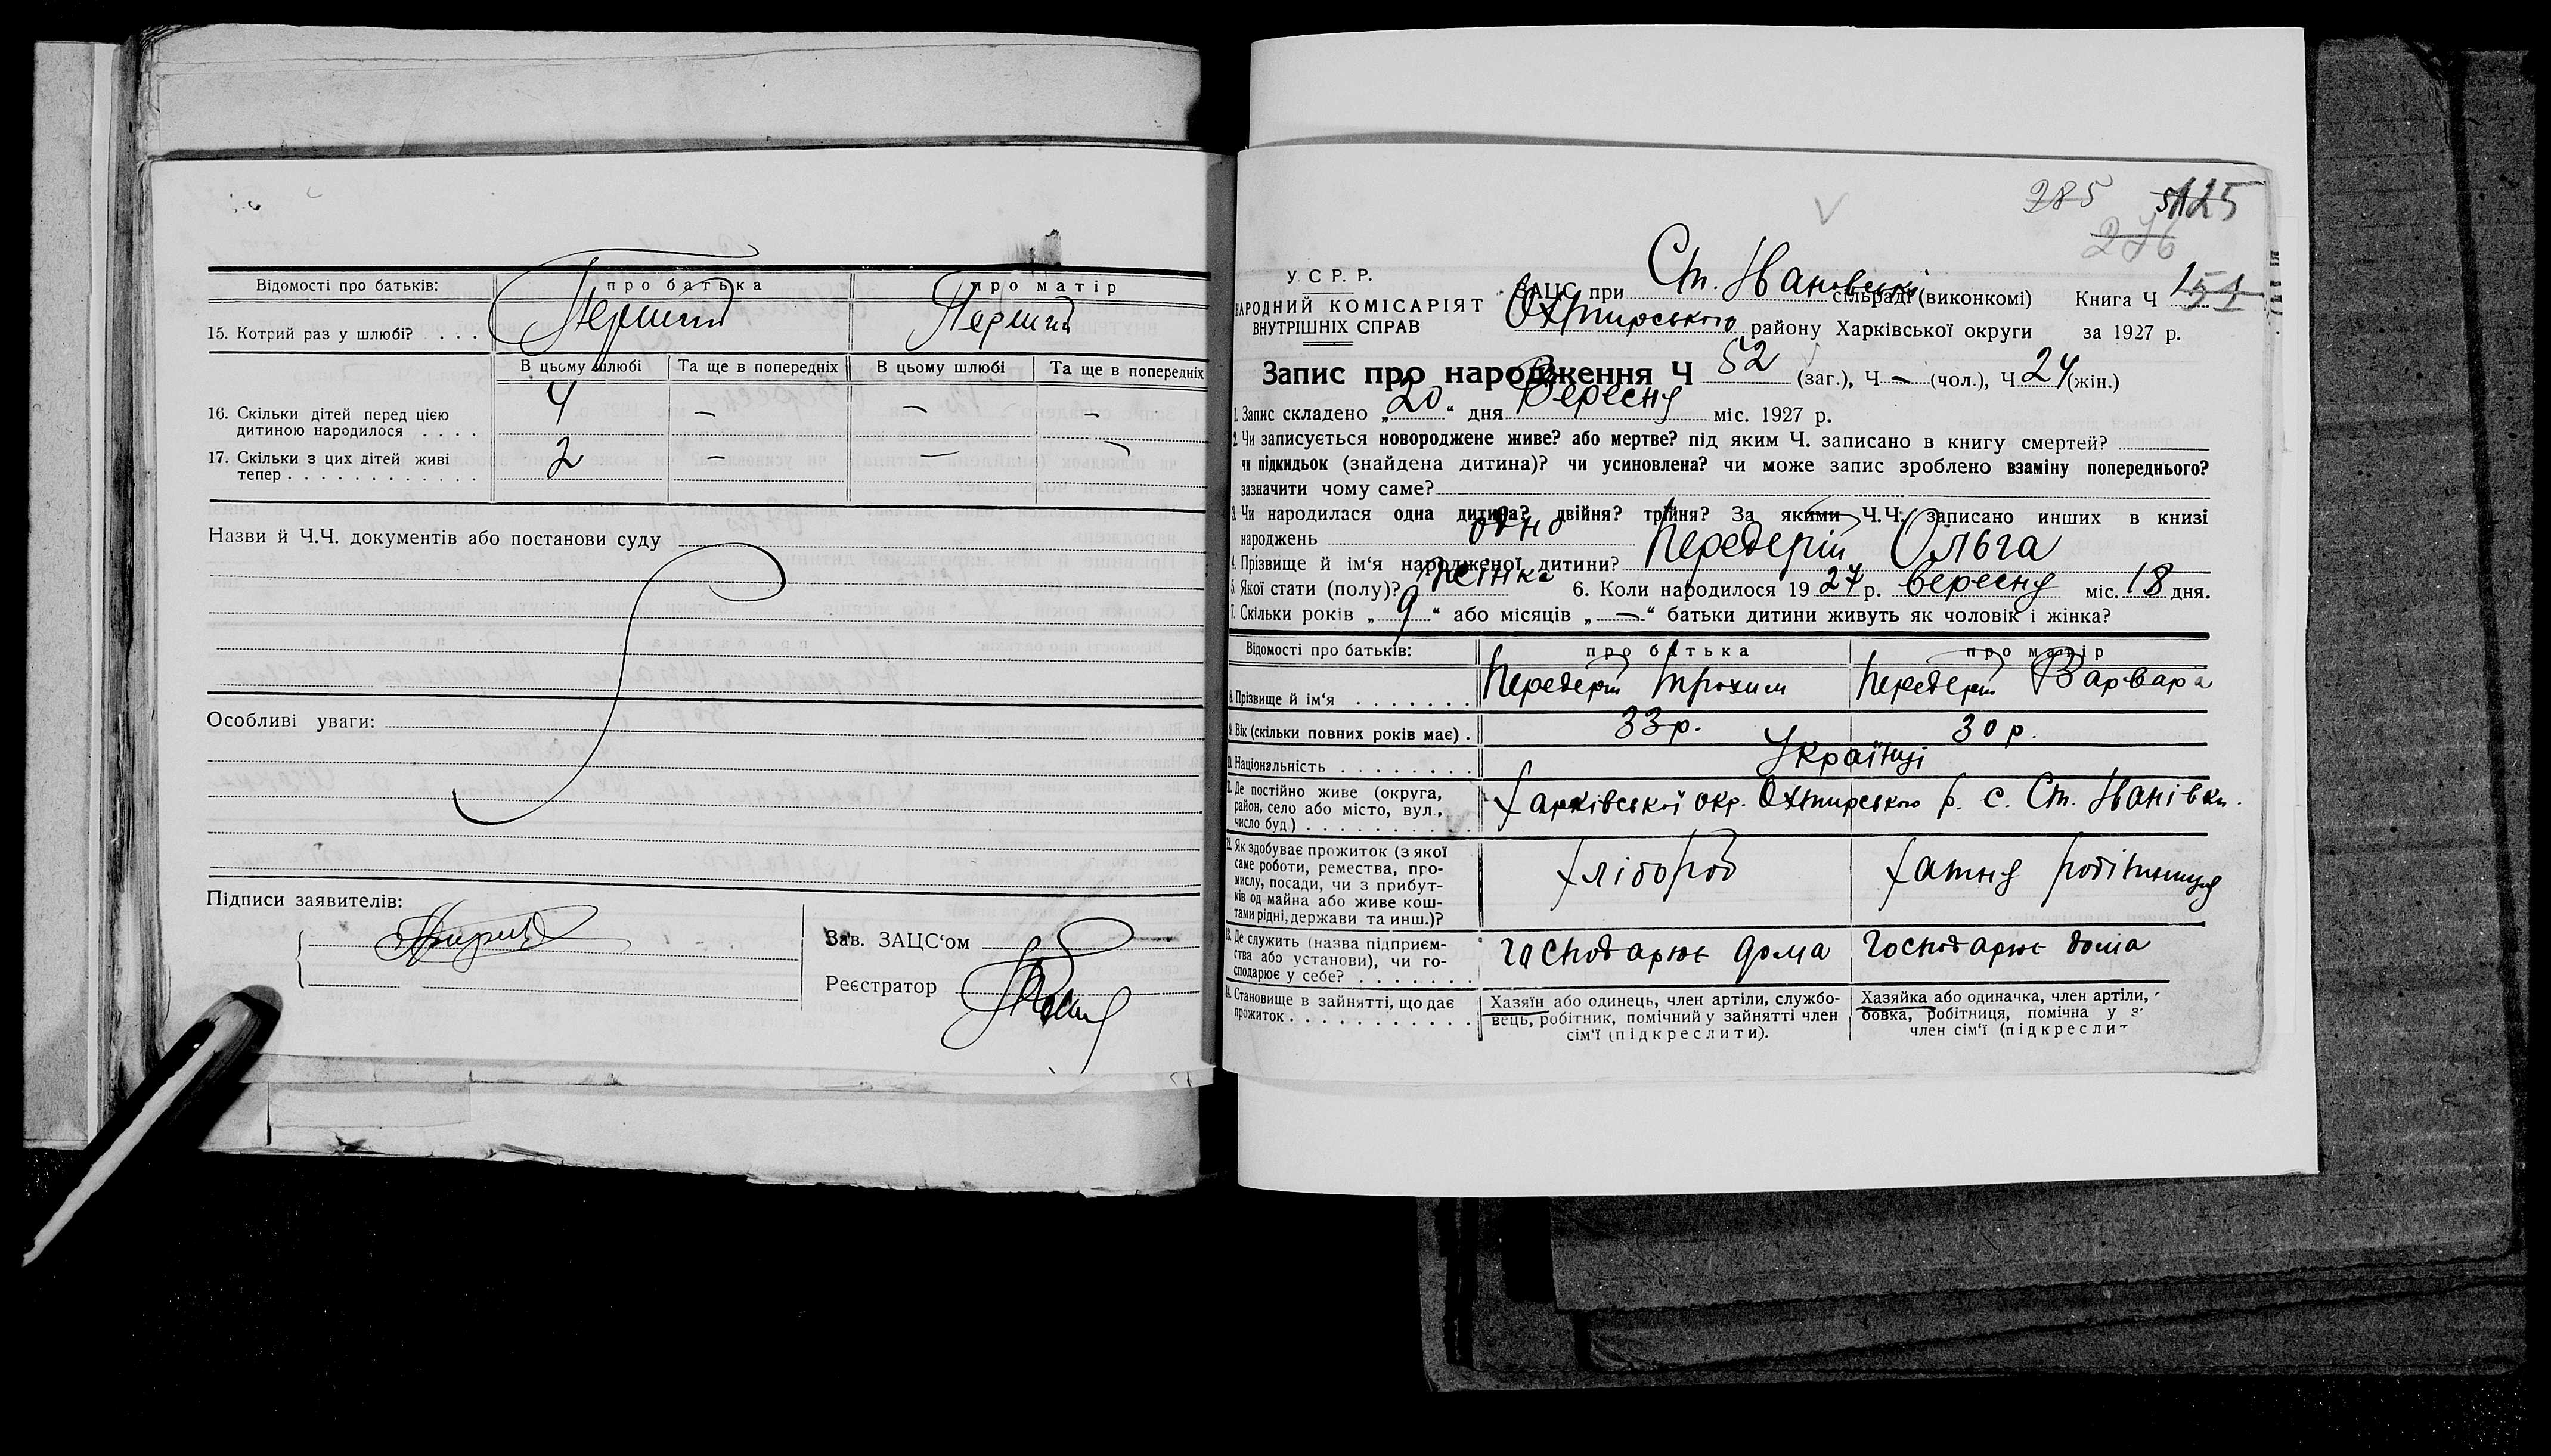 Відомості про батьків: про батька про матір
15. Котрий раз у шлюбі? . . . Перший Перший
В цьому шлюбі Та ще в попередніх В цьому шлюбі Та ще в попередніх
16. Скільки дітей перед цією
дитиною народилося . . . . 4 — — —
17. Скільки з цих дітей живі
тепер . . . . . . . . . . . . 2 — — —
Назви й Ч.Ч. документів або постанови суду
Особливі уваги:
Підписи заявителів:
Зав. ЗАЦС‘ом
Реєстратор
285 125
276
У. С. Р. Р.
НАРОДНИЙ КОМІСАРІЯТ
ВНУТРІШНІХ СПРАВ
ЗАЦС при Ст. Іванівській сільраді (виконкомі) Книга Ч 151
Охтирського району Харківської округи за 1927 р.
Запис про народження Ч 52 (заг.), Ч — (чол.), Ч 24 (жін.)
1. Запис складено „20“ дня Вересня міс. 1927 р.
2. Чи записується новороджене живе? або мертве? під яким Ч. записано в книгу смертей?
чи підкидьок (знайдена дитина)? чи усиновлена? чи може запис зроблено взаміну попереднього?
зазначити чому саме?
3. Чи народилася одна дитина? двійня? трійня? За якими Ч.Ч. записано инших в книзі
народжень одно
4. Прізвище й ім‘я народженої дитини? Передерій Ольга
5. Якої стати (полу)? жінка 6. Коли народилося 1927 р. вересня міс. 18 дня.
7. Скільки років „9“ або місяців „—“ батьки дитини живуть як чоловік і жінка?
Відомості про батьків: про батька про матір
8. Прізвище й ім‘я . . . . . . . Передерій Трохим Передерій Варвара
9. Вік (скільки повних років має) . 33 р. 30 р.
10. Національність . . . . . . . . Українці
11. Де постійно живе (округа,
район, село або місто, вул.,
число буд) . . . . . . . . . . Харківської окр. Охтирського р. с. Ст. Іванівки.
12. Як здобуває прожиток (з якої
саме роботи, ремества, про-
мислу, посади, чи з прибут-
ків од майна або живе кош-
тами рідні, держави та инш.)? Хлібороб Хатня робітниця
13. Де служить (назва підприєм-
ства або установи), чи го-
сподарює у себе? . . . . . . . Господарює дома Господарює дома
14. Становище в зайнятті, що дає
прожиток . . . . . . . . . . .
Хазяїн або одинець, член артіли, службо-
вець, робітник, помічний у зайнятті член
сім‘ї (підкреслити).
Хазяйка або одиначка, член артіли,
бовка, робітниця, помічна у з
член сім‘ї (підкресли